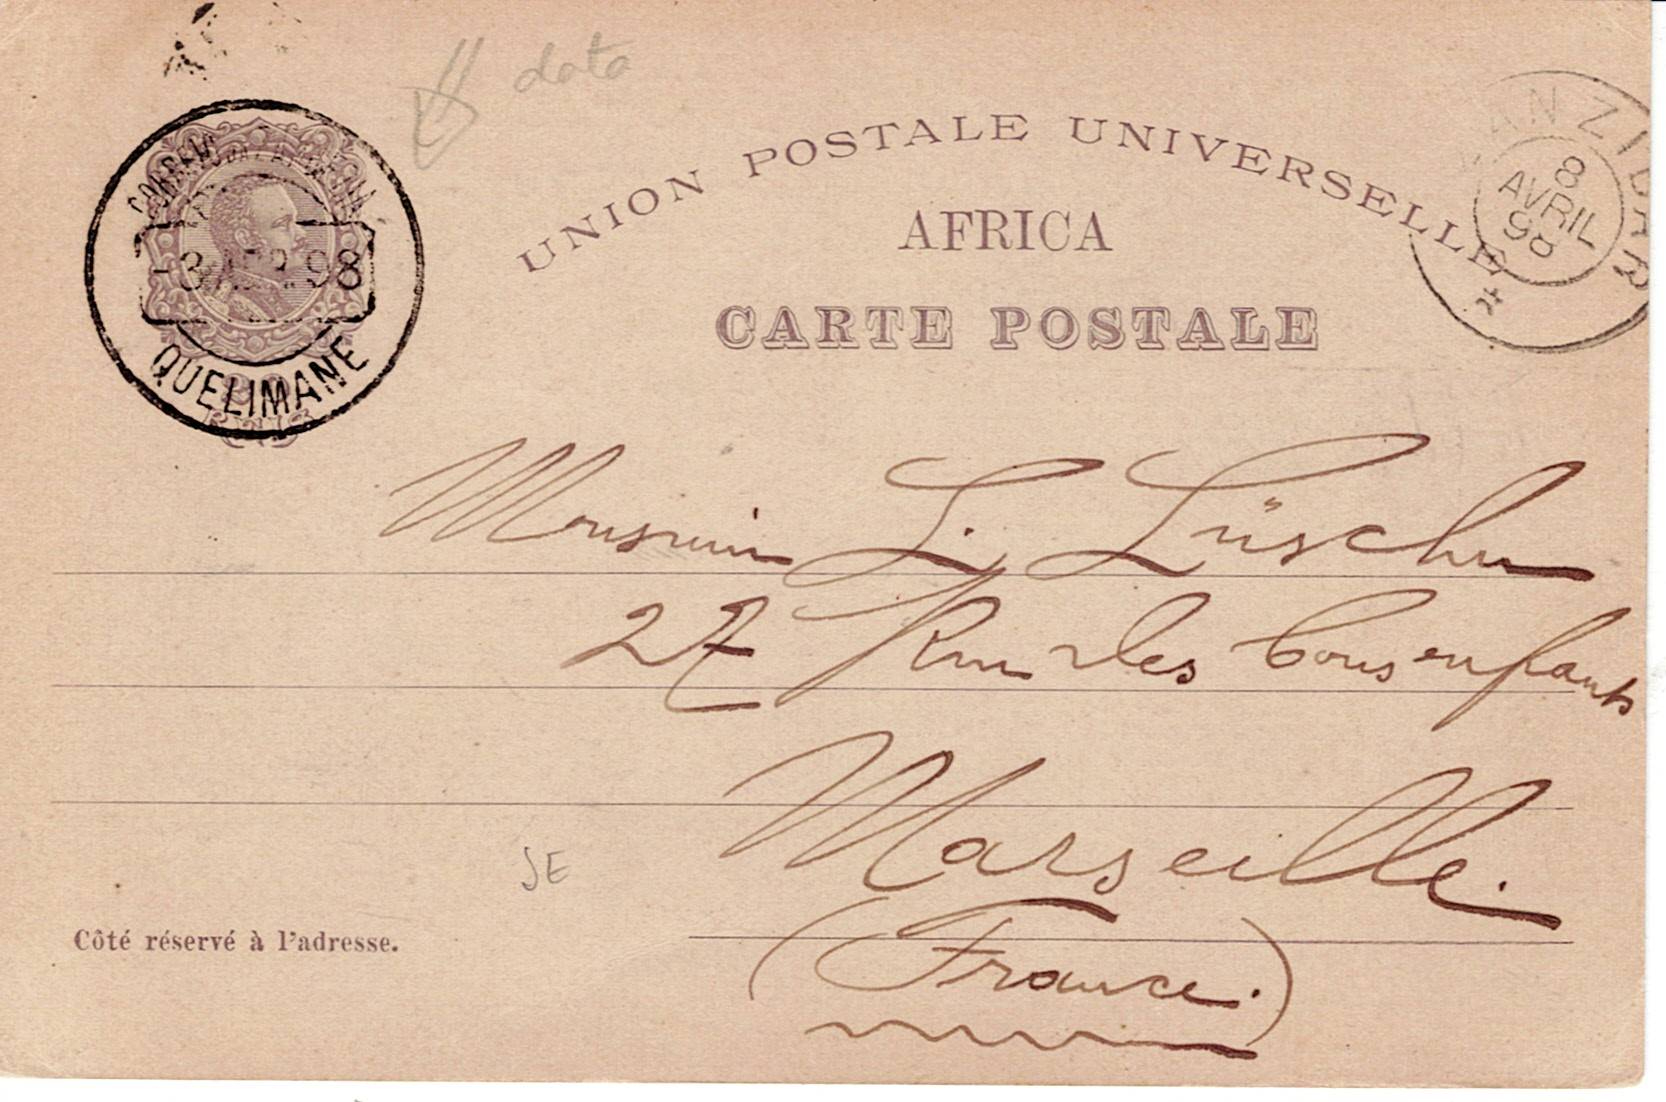 data
UNION POSTALE UNIVERSELLE
AFRICA
CARTE POSTALE
CORREIO
-3 ABR. 98
QUELIMANE
REIS
ZANZIBAR
8
AVRIL
98
Monsieur L. Lüscher
27 Rue des bons enfants
Marseille.
(France.)
SE
Côté réservé à l'adresse.